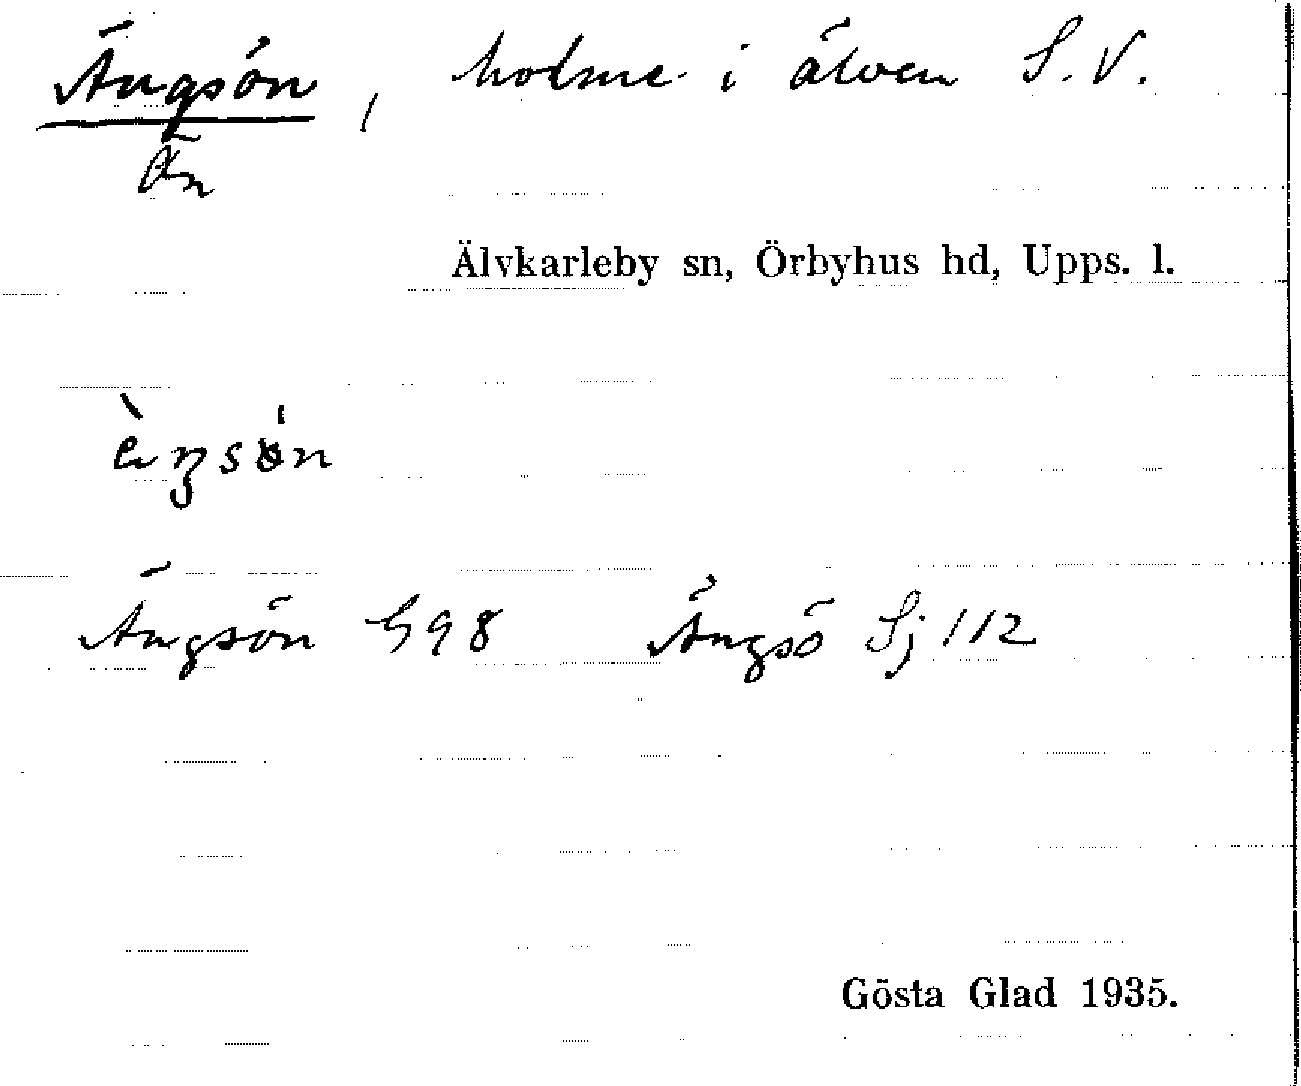 Ängsön, holme i älven S.V.
Ön
Älvkarleby sn, Örbyhus hd, Upps. l.
Ängsön G98 Ängsö Sj 112
Gösta Glad 1935.